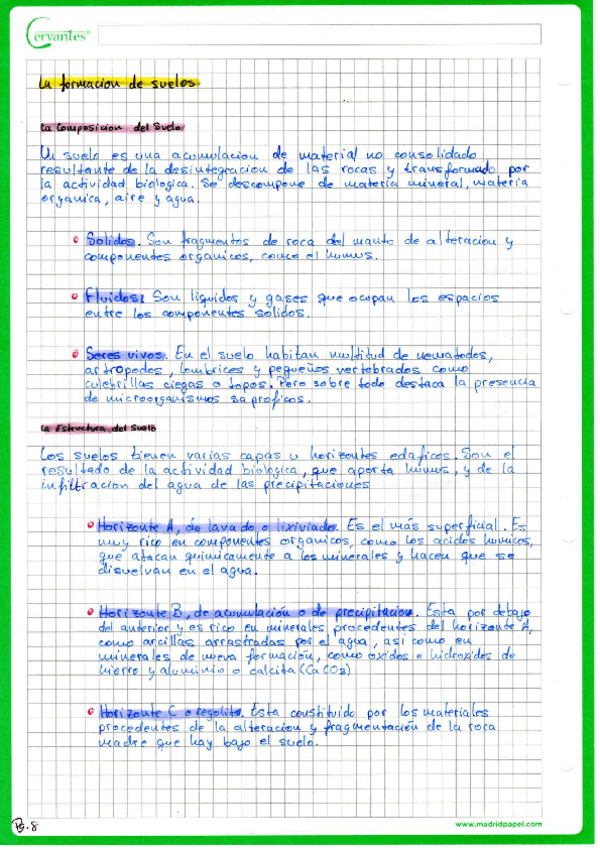 Cervantes®
La formacion de suelos.
La Composicion del Suelo
Un suelo es una acumulacion de material no consolidado
resultante de la desintegracion de las rocas y transformado por
la actividad biologica. Se descompone de materia mineral, materia
organica, aire y agua.
Solidos. Son fragmentos de roca del manto de alteracion y
componentes organicos, como el humus.
Fluidos. Son liquidos y gases que ocupan los espacios
entre los componentes solidos.
Seres vivos. En el suelo habitan multitud de nematodos,
artropodos, lombrices y pequeños vertebrados como
culebrillas ciegas o topos. Pero sobre todo destaca la presencia
de microorganismos saprofitos.
La Estructura del Suelo
Los suelos tienen varias capas u horizontes edaficos. Son el
resultado de la actividad biologica, que aporta humus, y de la
infiltracion del agua de las precipitaciones
Horizonte A, de lavado o lixiviado. Es el más superficial. Es
muy rico en componentes organicos, como los acidos humicos,
que atacan quimicamente a los minerales y hacen que se
disuelvan en el agua.
Horizonte B, de acumulación o de precipitacion. Esta por debajo
del anterior y es rico en minerales procedentes del horizonte A,
como arcillas arrastradas por el agua, asi como en
minerales de nueva formación, como oxidos e hidroxidos de
hierro y aluminio o calcita (CaCO2)
Horizonte C o regolito. Esta constituido por los materiales
procedentes de la alteracion y fragmentación de la roca
madre que hay bajo el suelo.
Pg. 8
www.madridpapel.com